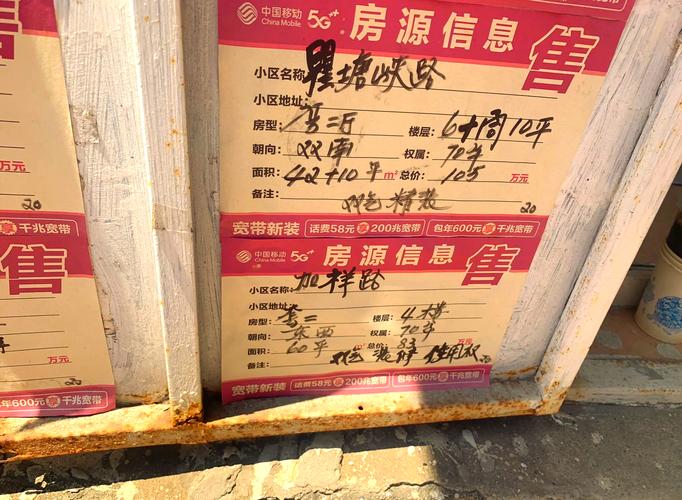 中国移动 China Mobile 5G++ 房源信息 售
小区名称: 瞿塘峡路
小区地址:
房型: 套二厅 楼层: 6+阁10平
朝向: 双南 权属: 70年
面积: 42+10平 m² 总价: 105 万元
备注: 双气 精装 20
宽带新装 话费58元享200兆宽带 包年600元享千兆宽带
中国移动 China Mobile 5G++ 房源信息 售
小区名称: 加祥路
小区地址:
房型: 套二 楼层: 4楼
朝向: 东西 权属: 70年
面积: 60平 m² 总价: 83 万元
备注: 双气 使用权 20
宽带新装 话费58元享200兆宽带 包年600元享千兆宽带
售
万元
20
享千兆宽带
售
万元
20
年600元享千兆宽带